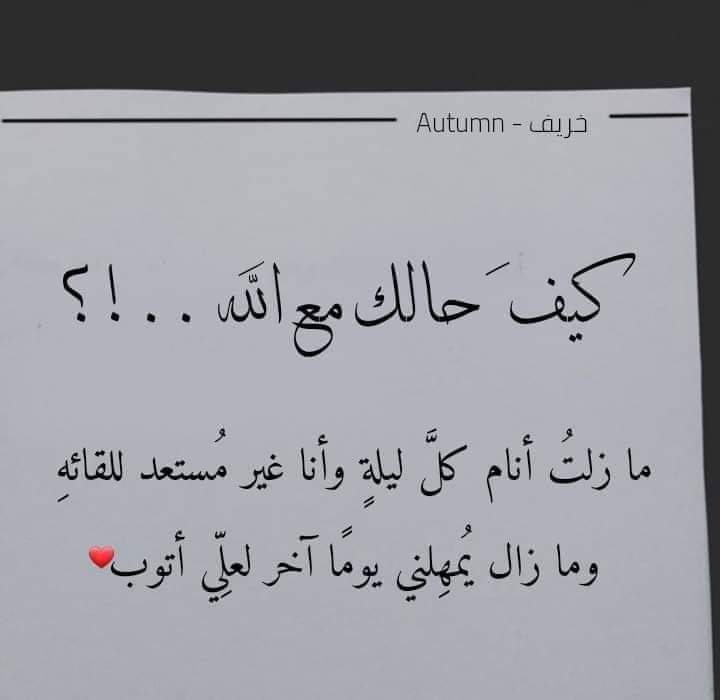 خريف - Autumn
كيفَ حالك مع الله . . . !؟
ما زلتُ أنام كلَّ ليلةٍ وأنا غير مُستعد للقائهِ
وما زال يُمهِلني يومًا آخر لعلِّي أتوب❤️